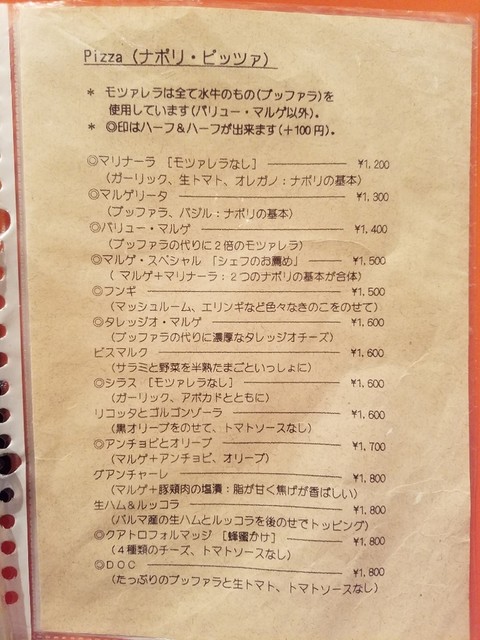 Pizza（ナポリ・ピッツァ）
* モツァレラは全て水牛のもの（ブッファラ）を
使用しています（バリュー・マルゲ以外）。
* ◎印はハーフ＆ハーフが出来ます（＋100円）。
◎マリナーラ ［モツァレラなし］ ¥1,200
（ガーリック、生トマト、オレガノ：ナポリの基本）
◎マルゲリータ ¥1,300
（ブッファラ、バジル：ナポリの基本）
◎バリュー・マルゲ ¥1,400
（ブッファラの代りに２倍のモツァレラ）
◎マルゲ・スペシャル 「シェフのお薦め」 ¥1,500
（ マルゲ＋マリナーラ：２つのナポリの基本が合体）
◎フンギ ¥1,500
（マッシュルーム、エリンギなど色々なきのこをのせて）
◎タレッジオ・マルゲ ¥1,600
（ブッファラの代りに濃厚なタレッジオチーズ）
ビスマルク ¥1,600
（サラミと野菜を半熟たまごといっしょに）
◎シラス ［モツァレラなし］ ¥1,600
（ガーリック、アボカドとともに）
リコッタとゴルゴンゾーラ ¥1,600
（黒オリーブをのせて、トマトソースなし）
◎アンチョビとオリーブ ¥1,700
（マルゲ＋アンチョビ、オリーブ）
グアンチャーレ ¥1,800
（マルゲ＋豚頬肉の塩漬：脂が甘く焦げが香ばしい）
生ハム＆ルッコラ ¥1,800
（パルマ産の生ハムとルッコラを後のせでトッピング）
◎クアトロフォルマッジ ［蜂蜜かけ］ ¥1,800
（４種類のチーズ、トマトソースなし）
◎ＤＯＣ ¥1,800
（たっぷりのブッファラと生トマト、トマトソースなし）